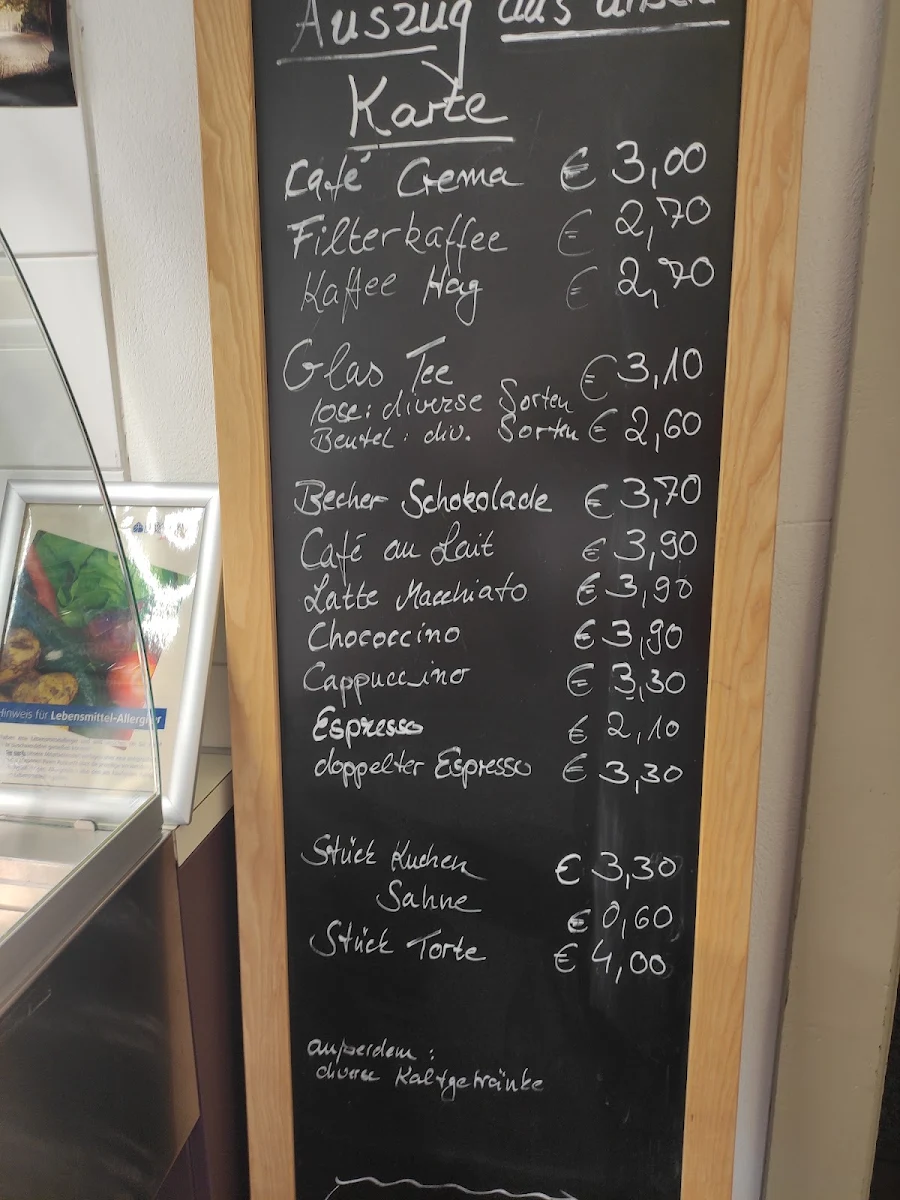 Auszug aus unserer
Karte
Café Crema € 3,00
Filterkaffee € 2,70
Kaffee Hag € 2,70
Glas Tee € 3,10
lose: diverse Sorten
Beutel: div. Sorten € 2,60
Becher Schokolade € 3,70
Café au Lait € 3,90
Latte Macchiato € 3,90
Chococcino € 3,90
Cappuccino € 3,30
Espresso € 2,10
doppelter Espresso € 3,30
Stück Kuchen € 3,30
Sahne € 0,60
Stück Torte € 4,00
außerdem:
diverse Kaltgetränke
Hinweis für Lebensmittel-Allergiker